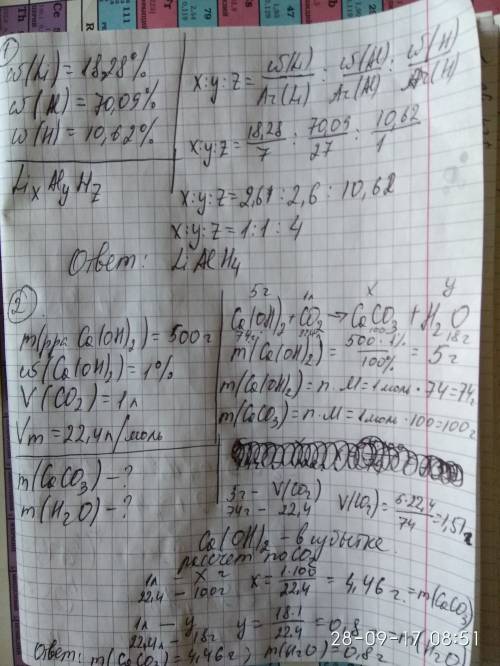 1
ω(Li) = 18,28%
ω(Al) = 70,05%
ω(H) = 10,62%
LixAlyHz
x:y:z = ω(Li)/Ar(Li) : ω(Al)/Ar(Al) : ω(H)/Ar(H)
x:y:z = 18,28/7 : 70,05/27 : 10,62/1
x:y:z = 2,61 : 2,6 : 10,62
x:y:z = 1:1:4
Ответ: LiAlH4
2
m(рра Ca(OH)2) = 500г
ω(Ca(OH)2) = 1%
V(CO2) = 1л
Vm = 22,4л/моль
m(CaCO3) - ?
m(H2O) - ?
5г 1л x y
Ca(OH)2 + CO2 → CaCO3 + H2O
74г 22,4л 100г 18г
m(Ca(OH)2) = 500·1%/100% = 5г
m(Ca(OH)2) = n·M = 1моль·74 = 74г
m(CaCO3) = n·M = 1моль·100 = 100г
5г - V(CO2)
74г - 22,4
V(CO2) = 5·22,4/74 = 1,51л
Ca(OH)2 - в
рассчет по CO2
1л - x г
22,4 - 100г
x = 1·100/22,4 = 4,46г = m(CaCO3)
1л - y
22,4л - 18г
y = 18·1/22,4 = 0,8 = m(H2O)
Ответ: m(CaCO3) = 4,46г; m(H2O) = 0,8г
28-09-17 08:51